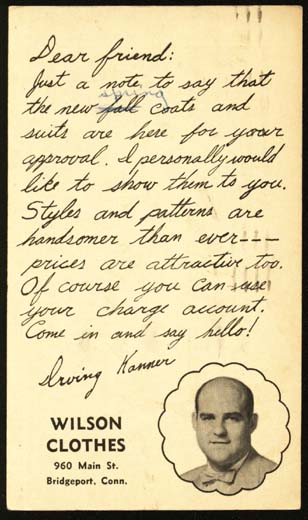 Dear friend:
Just a note to say that
spring
the new fall coats and
suits are here for your
approval. I personally would
like to show them to you.
Styles and patterns are
handsomer than ever---
prices are attractive too.
Of course you can use
your charge account.
Come in and say hello!
Irving Kanner
WILSON
CLOTHES
960 Main St.
Bridgeport, Conn.